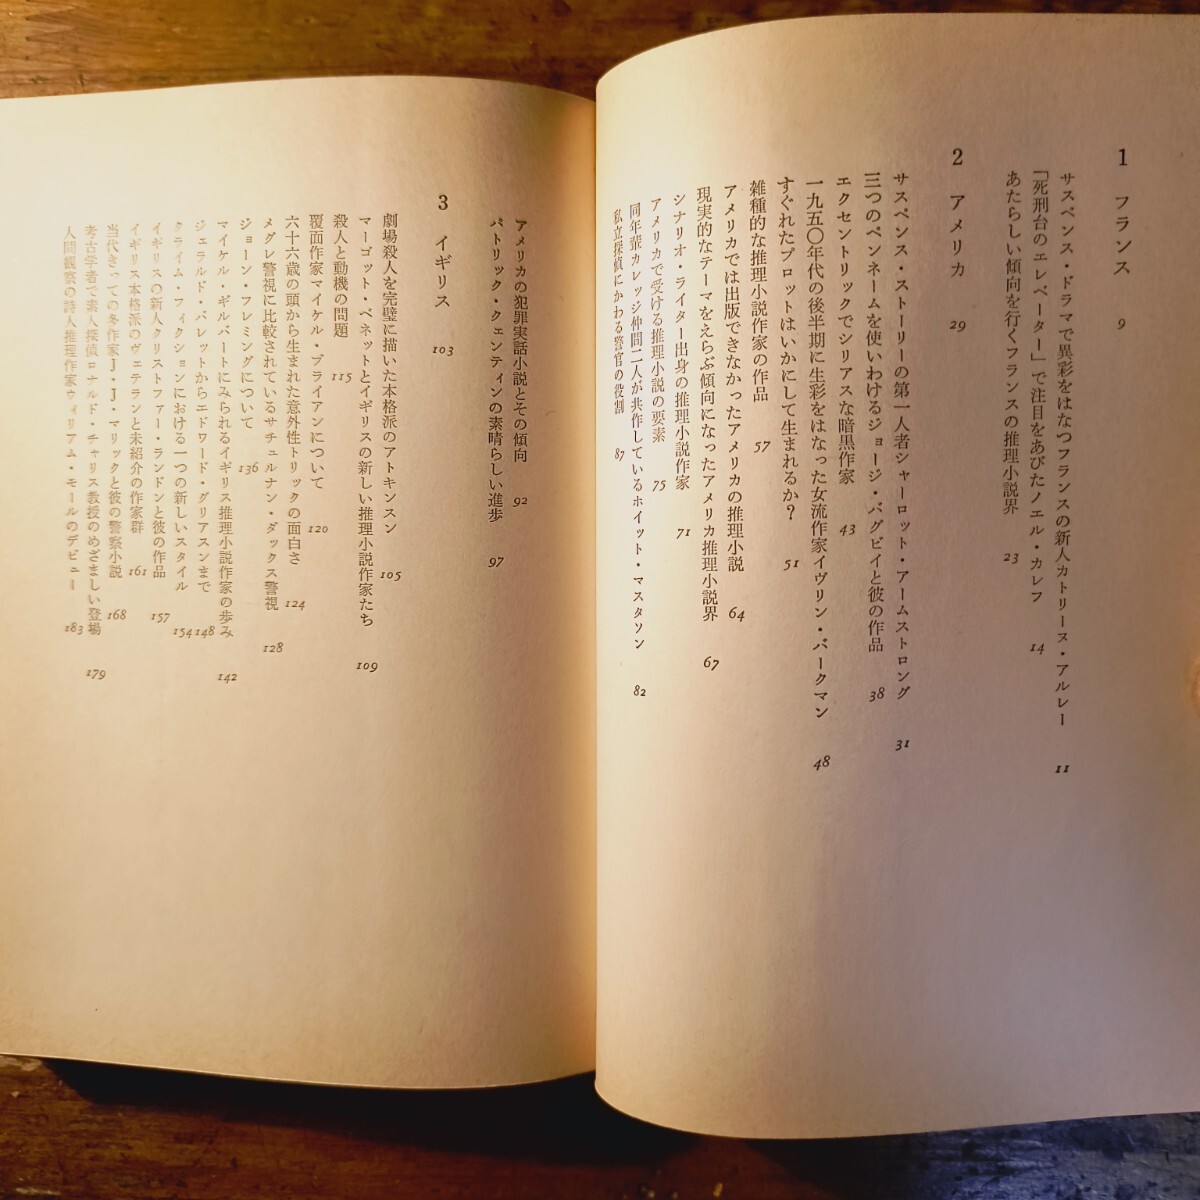 1 フランス 9
サスペンス・ドラマで異彩をはなつフランスの新人カトリーヌ・アルレー 11
「死刑台のエレベーター」で注目をあびたノエル・カレフ 14
あたらしい傾向を行くフランスの推理小説界 23
2 アメリカ 29
サスペンス・ストーリーの第一人者シャーロット・アームストロング 31
三つのペンネームを使いわけるジョージ・バグビイと彼の作品 38
エクセントリックでシリアスな暗黒作家 43
一九五〇年代の後半期に生彩をはなった女流作家イヴリン・バークマン 48
すぐれたプロットはいかにして生まれるか? 51
雑種的な推理小説作家の作品 57
アメリカでは出版できなかったアメリカの推理小説 64
現実的なテーマをえらぶ傾向になったアメリカ推理小説界 67
シナリオ・ライター出身の推理小説作家 71
アメリカで受ける推理小説の要素 75
同年輩カレッジ仲間二人が共作しているホイット・マスタソン 82
私立探偵にかわる警官の役割 87
アメリカの犯罪実話小説とその傾向 92
パトリック・クェンティンの素晴らしい進歩 97
3 イギリス 103
劇場殺人を完璧に描いた本格派のアトキンスン 105
マーゴット・ベネットとイギリスの新しい推理小説作家たち 109
殺人と動機の問題 115
覆面作家マイケル・ブライアンについて 120
六十六歳の頭から生まれた意外性トリックの面白さ 124
メグレ警視に比較されているサチュルナン・ダックス警視 128
ジョーン・フレミングについて 136
マイケル・ギルバートにみられるイギリス推理小説作家の歩み 142
ジェラルド・バレットからエドワード・グリアスンまで 148
クライム・フィクションにおける一つの新しいスタイル 154
イギリスの新人クリストファー・ランドンと彼の作品 157
イギリス本格派のヴェテランと未紹介の作家群 161
当代きっての多作家J・J・マリックと彼の警察小説 168
考古学者で素人探偵ロナルド・チャリス教授のめざましい登場 179
人間観察の詩人推理作家ウィリアム・モールのデビュー 183